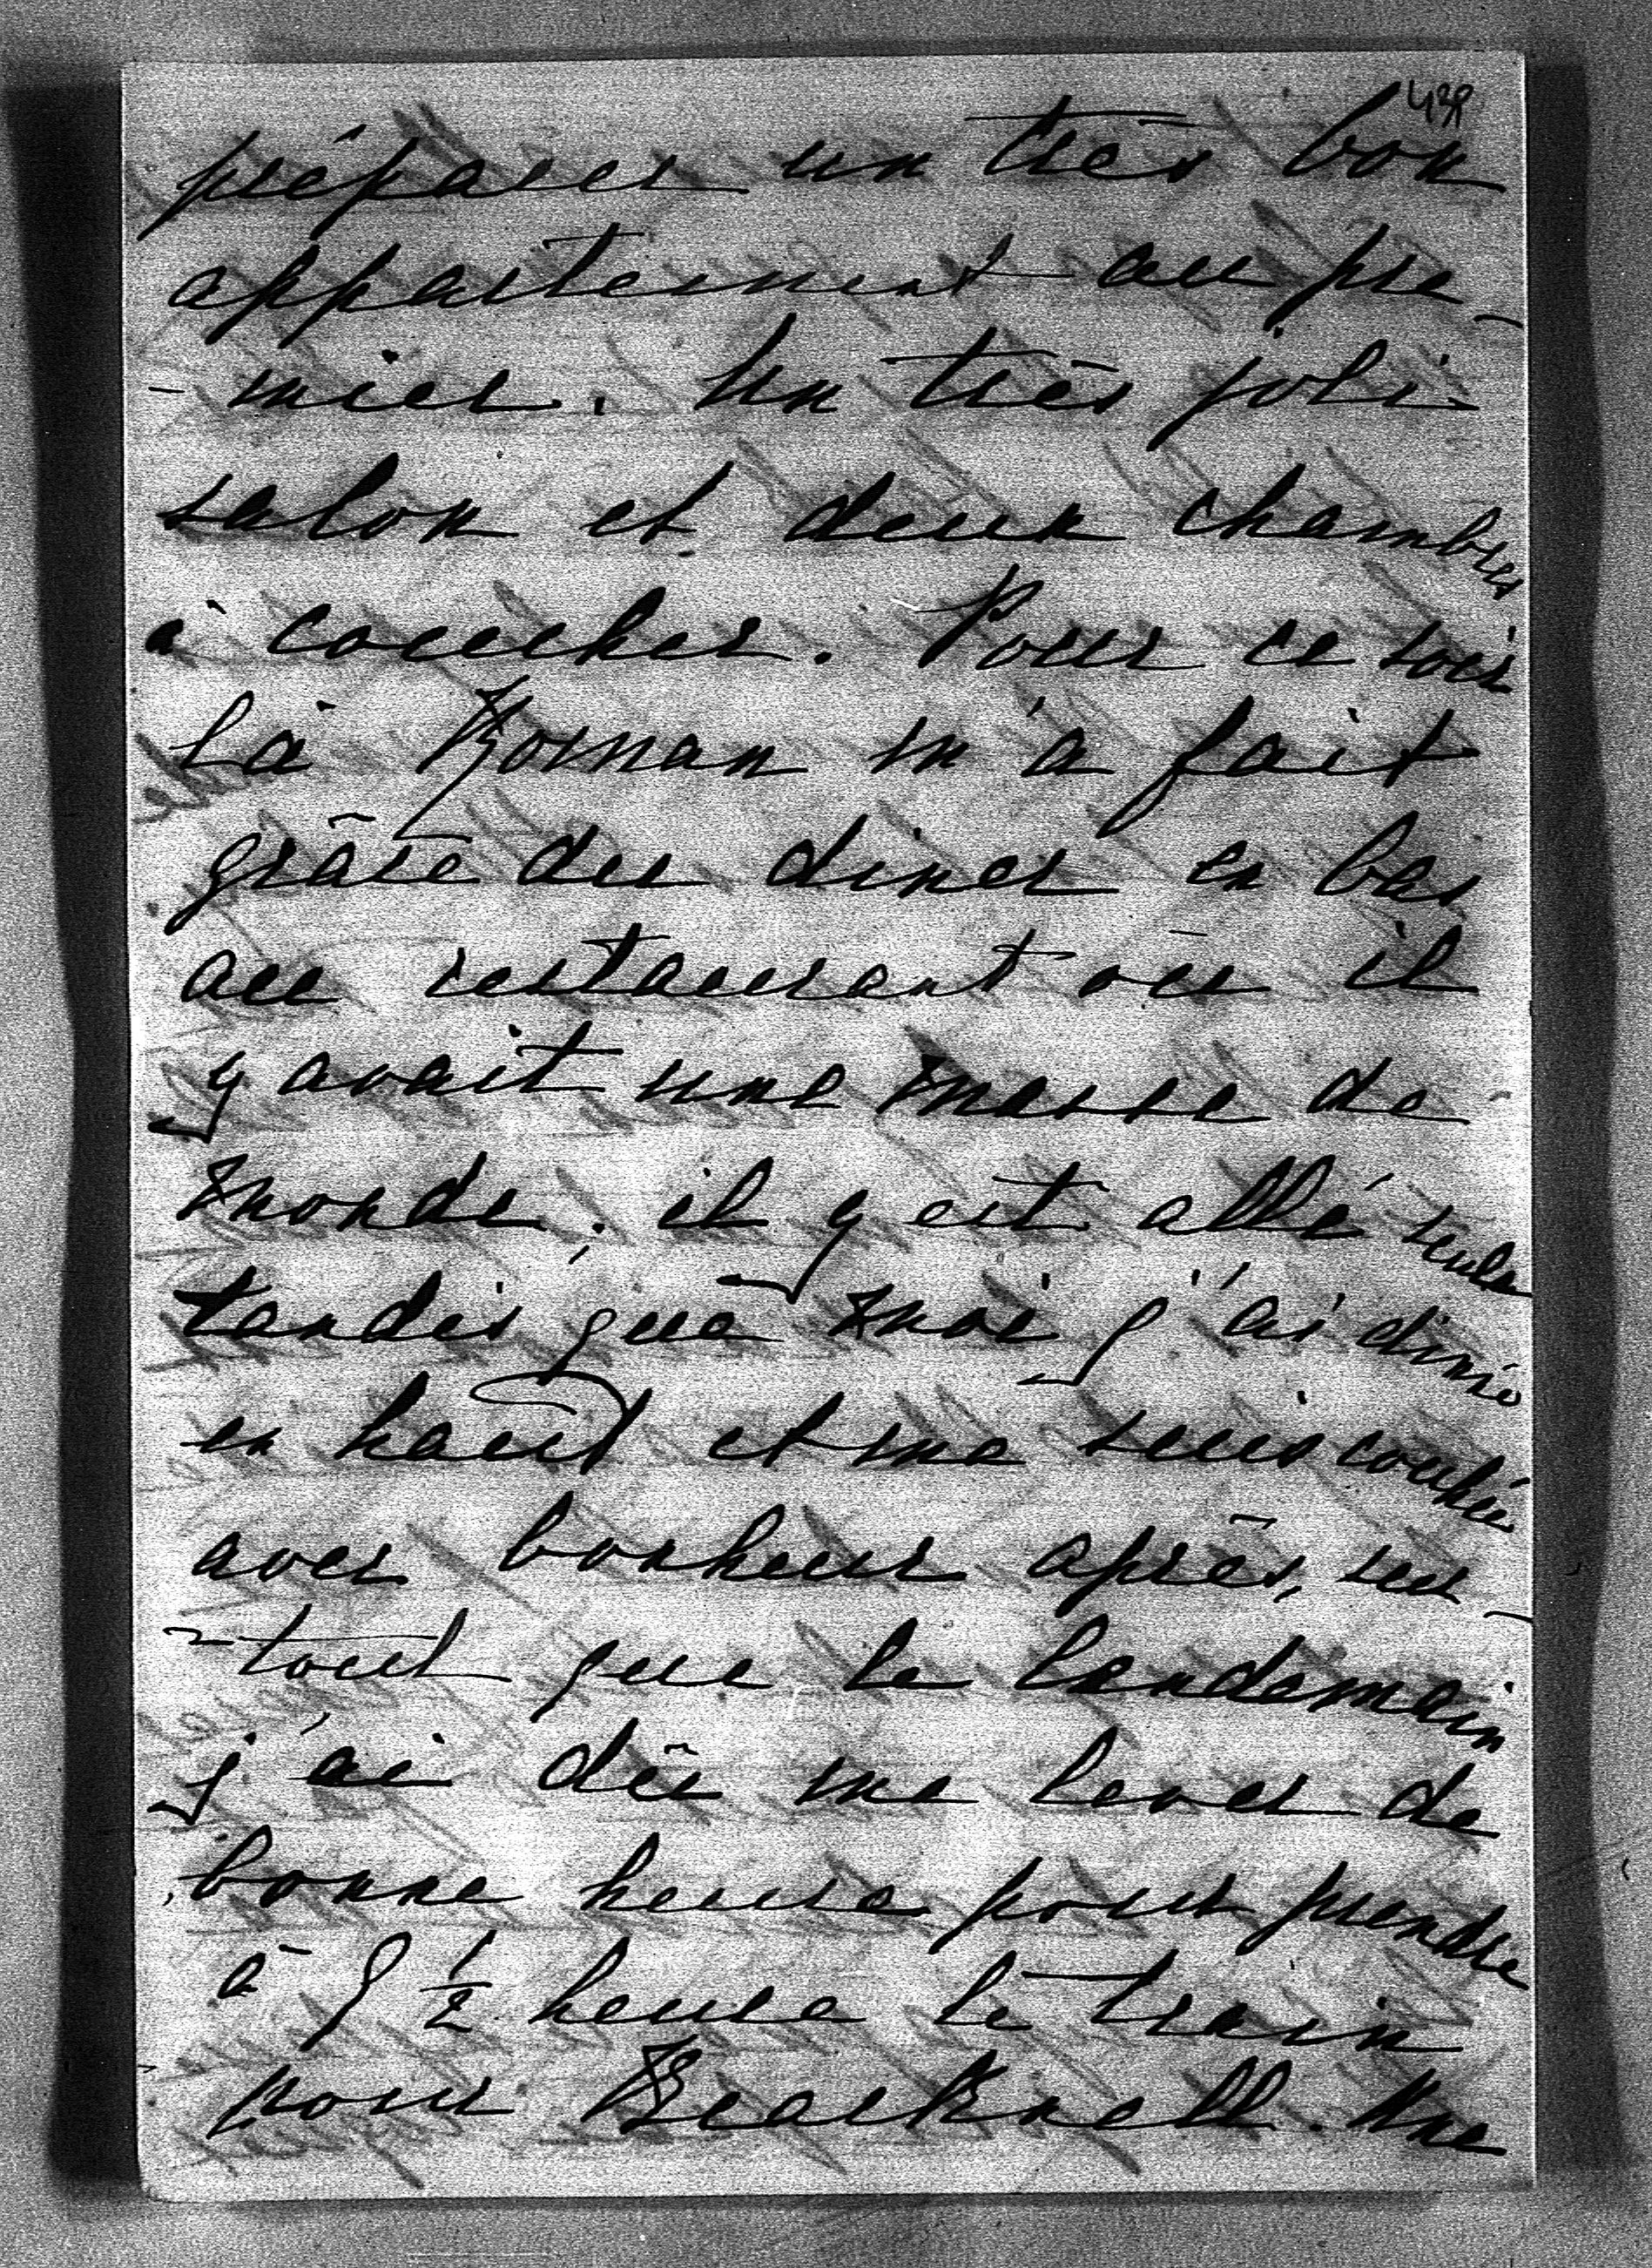 438
préparer un très bon
appartement au pre-
-mier. Un très joli
salon et deux chambres
à coucher. Pour ce soir
là Roman m'a fait
grâce du diner en bas
au restaurant où il
y avait une masse de
monde; il y est allé seul
tandis que moi j'ai diné
en haut et me suis couchée
avec bonheur après, sur-
-tout que le lendemain
j'ai dû me lever de
bonne heure pour prendre
à 9 1/2 heure le train
pour Bracknell. Une